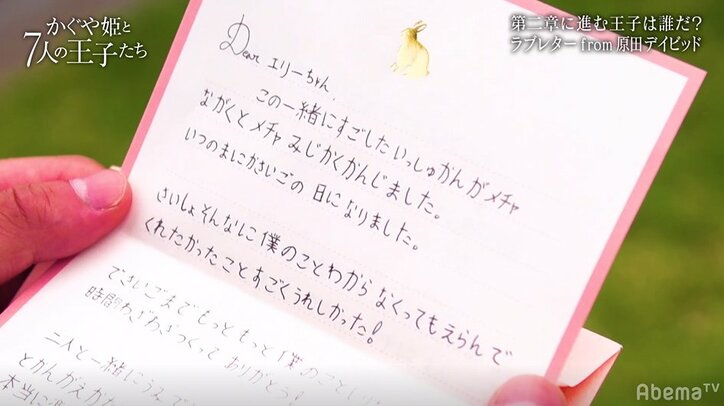 かぐや姫と
7人の王子たち
第二章に進む王子は誰だ?
ラブレターfrom原田デイビッド
Dear エリーちゃん
この一緒にすごしたいっしゅかんがメチャ
ながくとメチャ みじかくかんじました。
いつのまにかさいごの 日になりました。
さいしょそんなに僕のことわからなくってもえらんで
くれたかったことすごくうれしかった!
でさいごまでもっともっと僕のこと
時間わざわざつくって ありがとう!
二人と一緒にうみで
とかんがえかた
本当に
AbemaTV